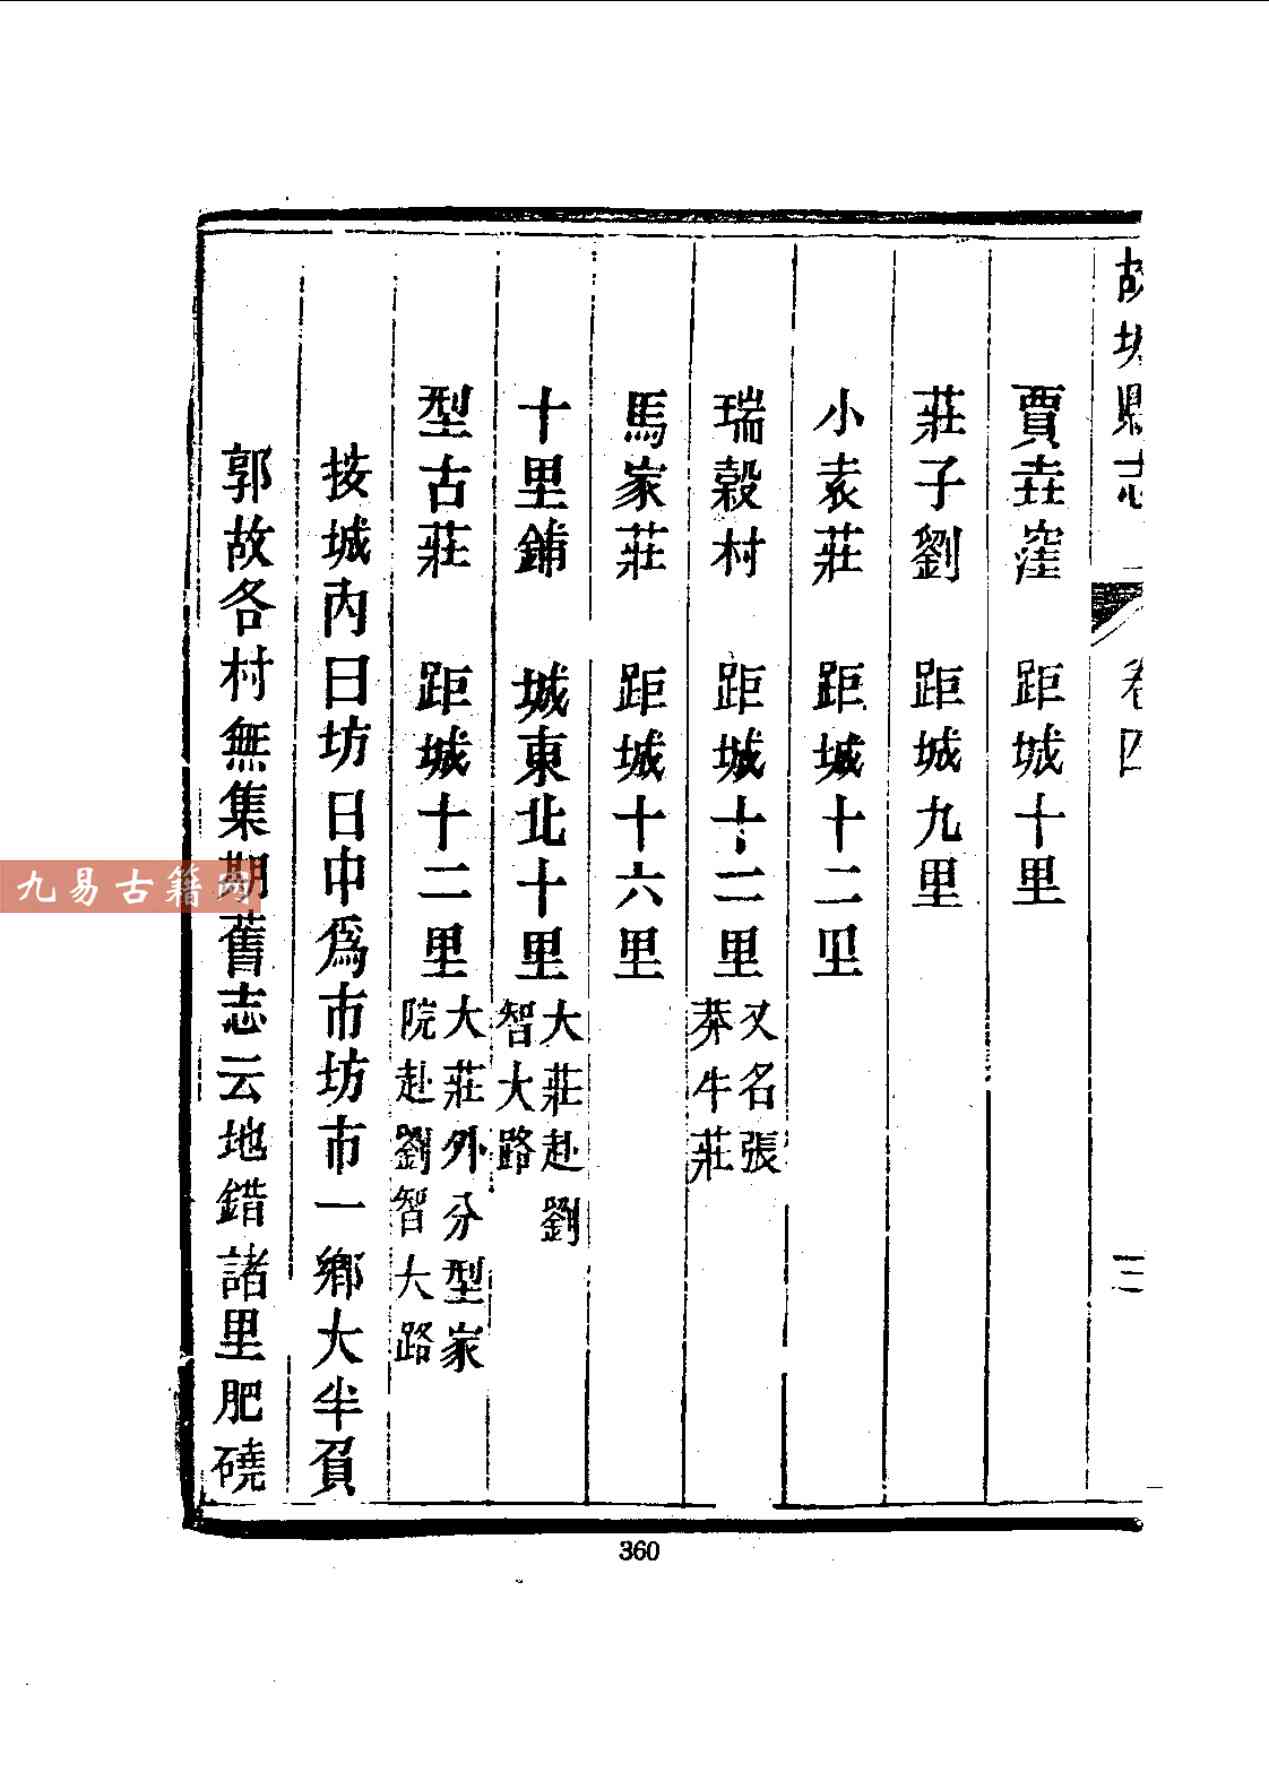 故城縣志
卷四
三
賈壵窪　距城十里
莊子劉　距城九里
小袁莊　距城十二里
瑞穀村　距城十二里 又名張莽牛莊
馬家莊　距城十六里
十里鋪　城東北十里 大莊赴劉智大路
型古莊　距城十二里 大莊外分型家院赴劉智大路
按城內曰坊日中爲市坊市一鄉大半負
郭故各村無集期舊志云地錯諸里肥磽
九易古籍网
360